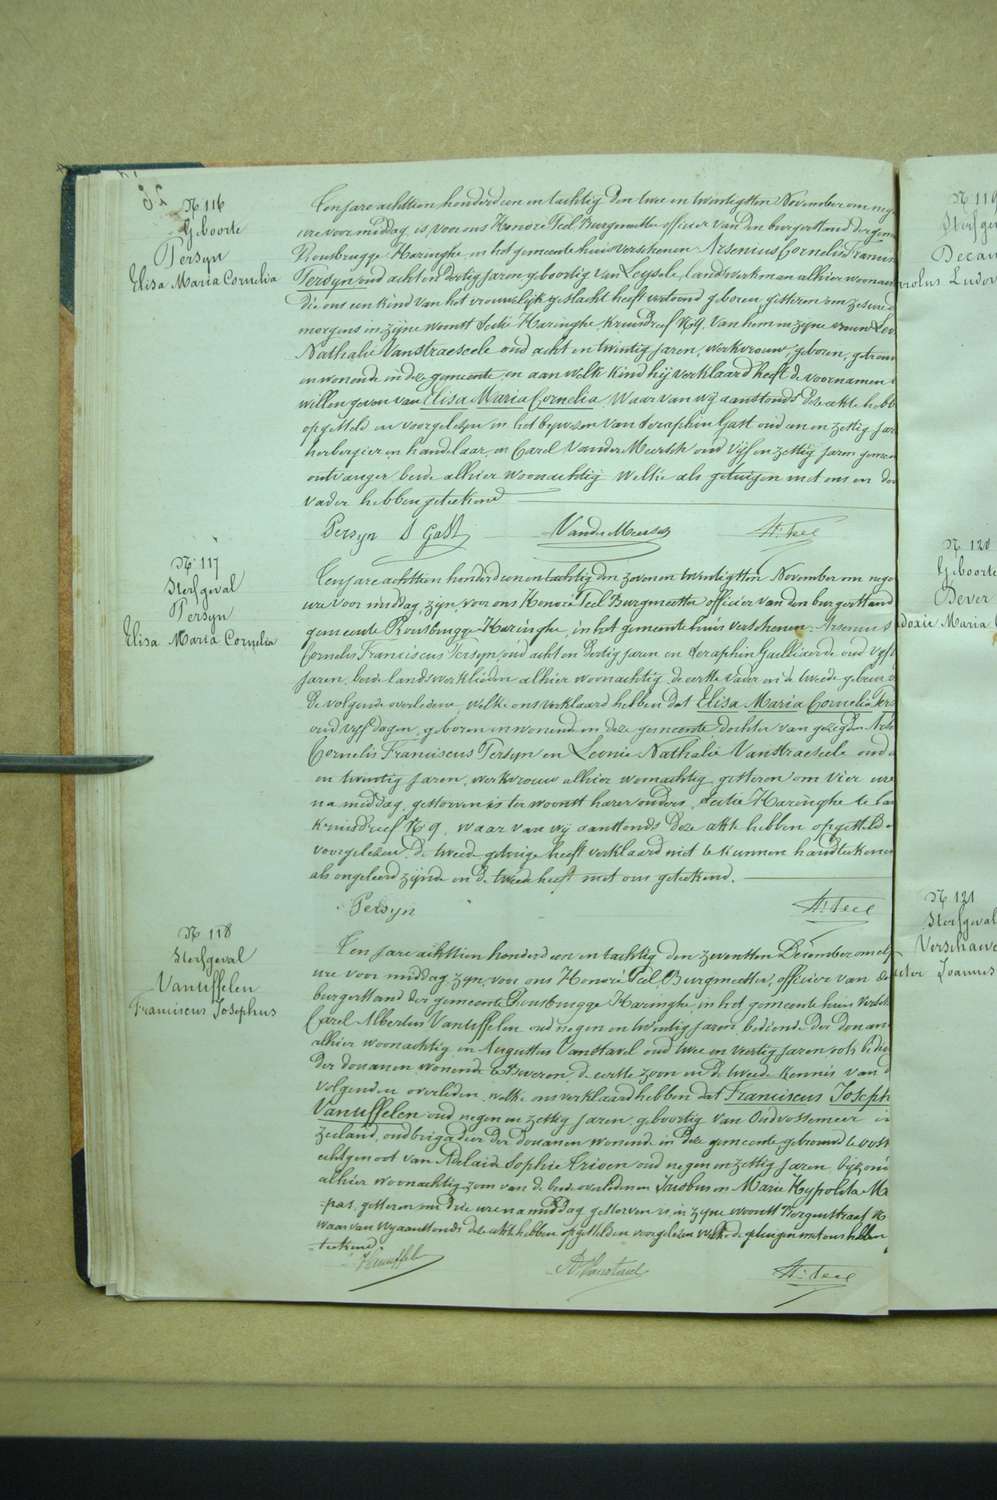 N 116
Geboorte
Persyn
Elisa Maria Cornelia
Ten jare achttien honderd een en tachtig den twee en twintigsten November om neg
ure voor middag, is voor ons Honoré Teel Burgmeester officier van den burgerstand der gem
Rousbrugge Haringhe, in het gemeente huis verschenen Arsenius Cornelis Francis
Persyn, oud acht en dertig jaren, geboortig van Leysele, landswerkman alhier woonan
die ons een kind van het vrouwelijk geslacht heeft vertoond, geboren gisteren om zes ure d
morgens in zijne woonst sectie Haringhe, Kruisdreef N 9. van hem en zijne vrouw Leo
Nathalie Vanstraeseele oud acht en twintig jaren, werkvrouw, geboren, getrouw
en wonende in deze gemeente, en aan welke kind hij verklaard heeft de voornamen
willen geven van Elisa Maria Cornelia. Waar van wij aanstonds deze akte hebb
opgesteld en voorgelezen in het bijwezen van Seraphin Gast oud een en zestig jar
herbergier en handelaar, en Carel Vander Meersch oud vijf en zestig jaren gemeen
ontvanger beide alhier woonachtig welke als getuigen met ons en den
vader hebben geteekend
Persyn S Gast Vander Meersch H. Teel
N 117
Sterfgeval
Persyn
Elisa Maria Cornelia
Ten jare achttien honderd een en tachtig den zeven en twintigsten November om nege
ure voor middag, zijn, voor ons Honoré Teel Burgmeester officier van den burgerstand
gemeente Rousbrugge Haringhe, in het gemeente huis verschenen Arsenius
Cornelis Franciscus Persyn, oud acht en dertig jaren en Seraphin Gailliaerde oud vijft
jaren, beide landswerklieden alhier woonachtig, de eerste vader en de tweede gebuur v
de volgende overledene, welke ons verklaard hebben dat Elisa Maria Cornelia Pers
oud vijf dagen, geboren en wonende in deze gemeente dochter van gezegden Arse
Cornelis Franciscus Persyn en Leonie Nathalie Vanstraeseele oud a
en twintig jaren, werkvrouw alhier woonachtig gisteren om vier ure
na middag, gestorven is ter woonst harer ouders, sectie Haringhe te lan
Kruisdreef N 9, waar van wij aanstonds deze akte hebben opgesteld e
voorgelezen. De tweede getuige heeft verklaard niet te kunnen handteekenen
als ongeleerd zijnde en de heeft met ons geteekend.
Persyn H. Teel
N 118
Sterfgeval
Vanuffelen
Franciscus Josephus
Ten jare achttien honderd een en tachtig den zeventsten December om elf
ure voor middag zijn, voor ons Honoré Teel Burgmeester, officier van den
burgerstand der gemeente Rousbrugge Haringhe, in het gemeente huis versche
Carel Albertus Vanuffelen oud negen en twintig jaren bediende der douan
alhier woonachtig en Augustus Vanstavel oud twee en veertig jaren ook bedien
der douanen wonende te Beveren, de eerste zoon en de tweede kennis van d
volgenden overleden, welke ons verklaard hebben dat Franciscus Joseph
Vanuffelen oud negen en zestig jaren geboortig van Oudvossemeer in
Zeeland, oud brigadier der douanen wonende in deze gemeente
echtgenoot van Adelaide Sophie oud negen en zestig jaren, bijzond
alhier woonachtig zoon van de beide overledenen Jacobus en Marie Hypolita Ma
pas, gisteren om drie ure na middag gestorven is in zijne woonst Bergenstraat N
waar van wij aanstonds deze akte hebben opgesteld en voorgelezen welke de getuigen met ons hebben
teekend.
Vanuffel A. Vanstavel H. Teel
N 119
Sterfgev
Decan
rolus Ludov
N 120
Geboorte
Dever
doxie Maria
N 121
Sterfgeval
Verschave
ter Joannes